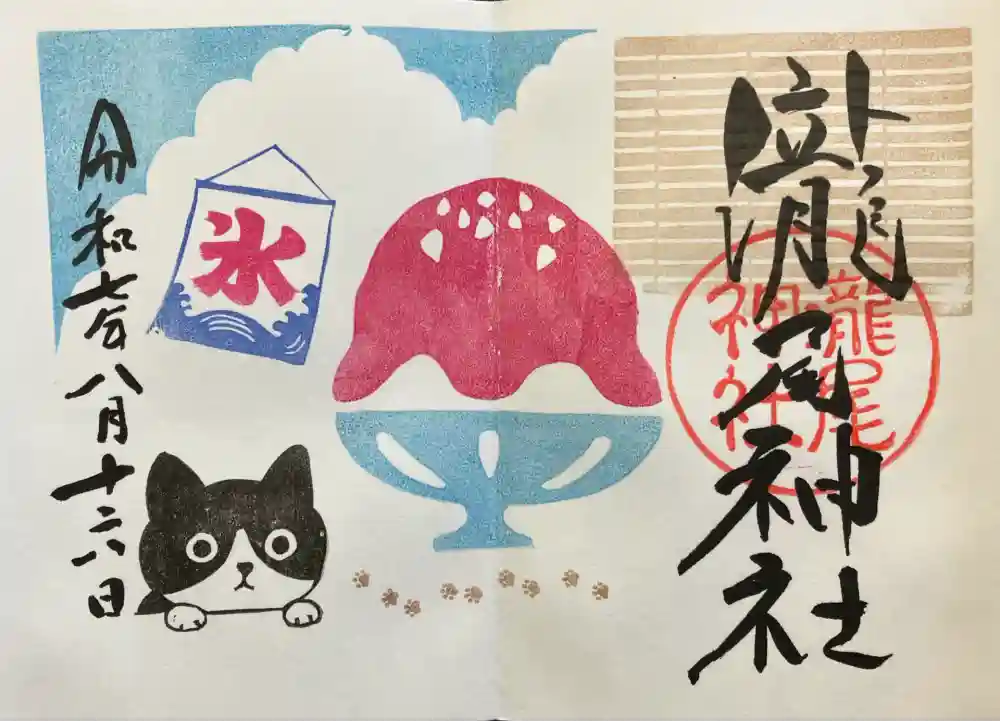 龍尾神社
龍尾
神社
氷
令和七年八月十六日